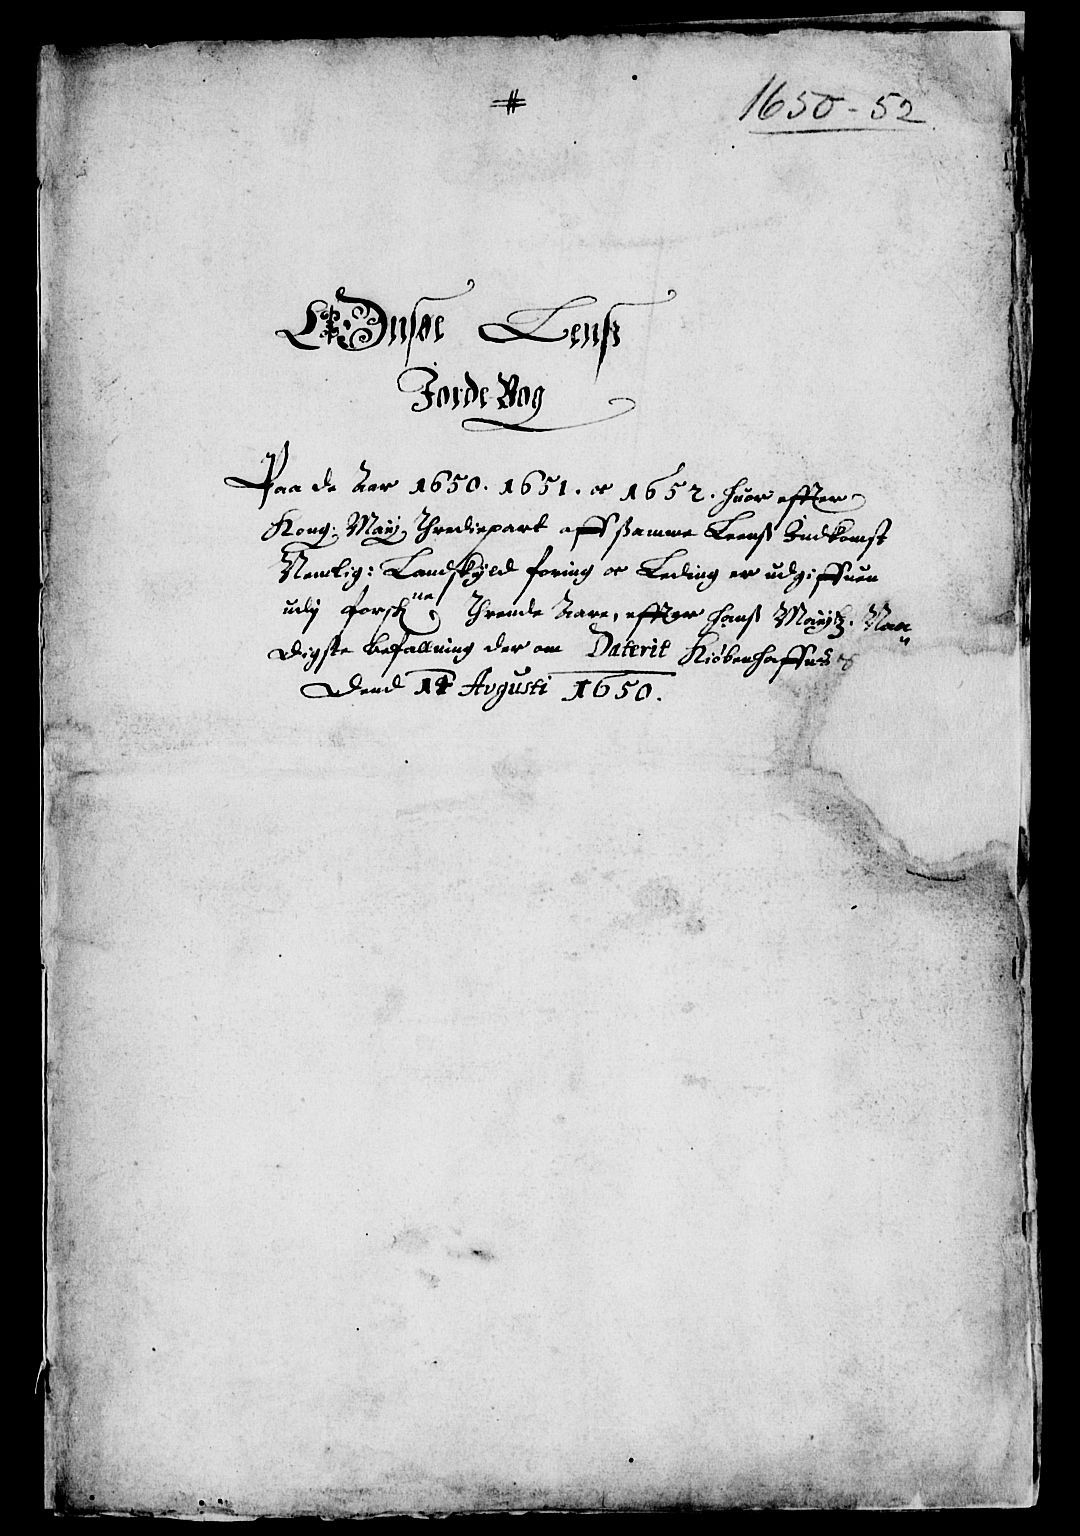 1650-52
Onsøe Lenß
Jorde Bog
Paa de Aar 1650. 1651. oc 1652. huor effter
Kong: Maÿ: Thrediepart aff ßamme Leens Indkomst
Nemlig: Landskÿld foring oc Leding er udgiffuen
udj forsch:ne Thrende Aare, effter hans Maÿtz. Naa
digste befallning der om Daterit Kiøbenhaffns
Dend 14 Avgusti 1650.